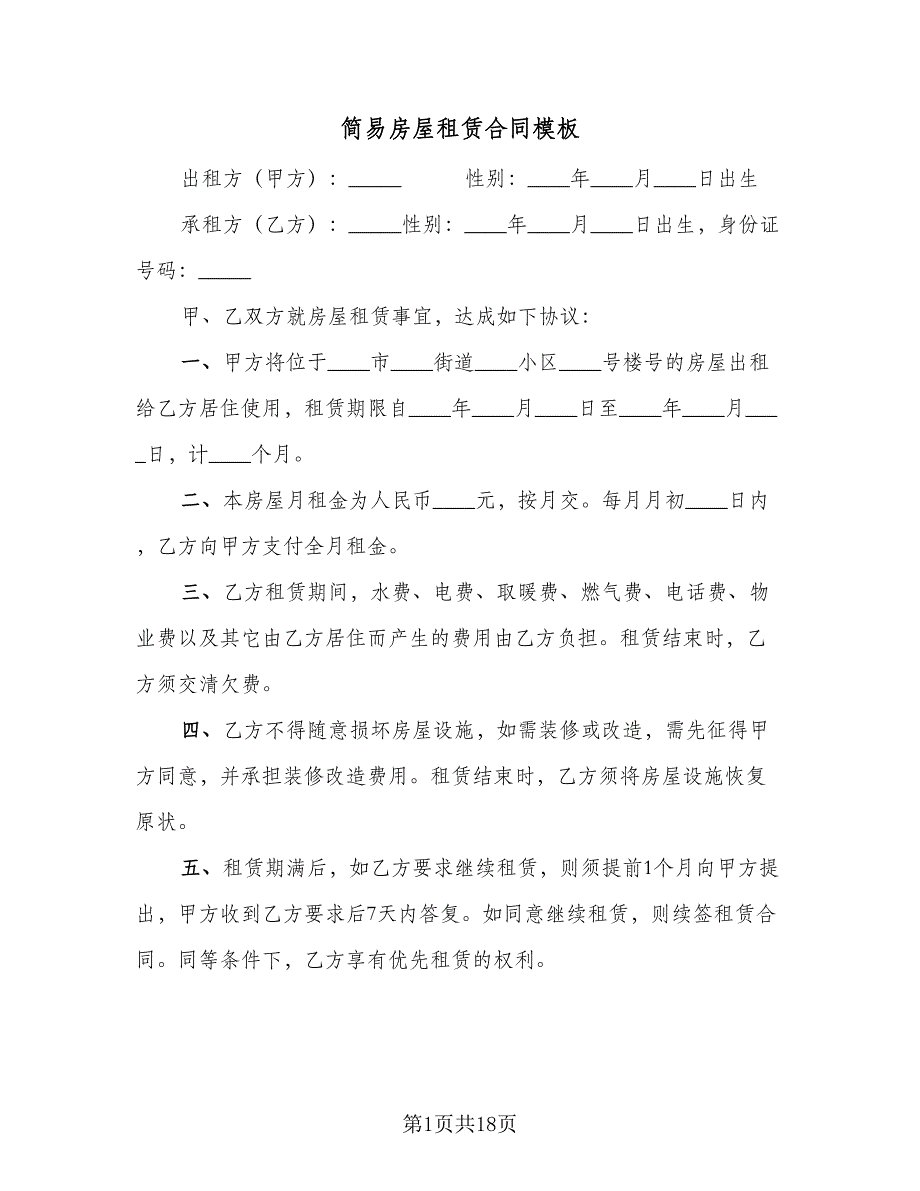 简易房屋租赁合同模板
出租方（甲方）：_____ 性别：____年____月____日出生
承租方（乙方）：_____性别：____年____月____日出生，身份证
号码：_____
甲、乙双方就房屋租赁事宜，达成如下协议：
一、甲方将位于____市____街道____小区____号楼号的房屋出租
给乙方居住使用，租赁期限自____年____月____日至____年____月___
_日，计____个月。
二、本房屋月租金为人民币____元，按月交。每月月初____日内
，乙方向甲方支付全月租金。
三、乙方租赁期间，水费、电费、取暖费、燃气费、电话费、物
业费以及其它由乙方居住而产生的费用由乙方负担。租赁结束时，乙
方须交清欠费。
四、乙方不得随意损坏房屋设施，如需装修或改造，需先征得甲
方同意，并承担装修改造费用。租赁结束时，乙方须将房屋设施恢复
原状。
五、租赁期满后，如乙方要求继续租赁，则须提前1个月向甲方提
出，甲方收到乙方要求后7天内答复。如同意继续租赁，则续签租赁合
同。同等条件下，乙方享有优先租赁的权利。
第1页共18页